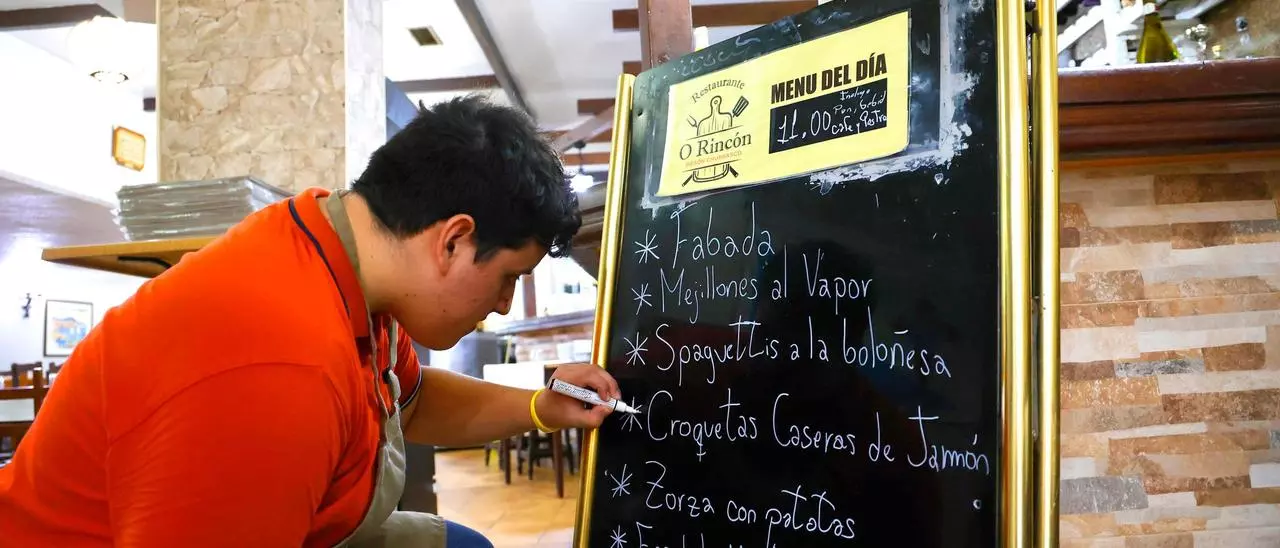 Restaurante
O Rincón
MENU DEL DÍA
11,00
Incluye
Pan, bebid
cafe y Postre
* Fabada
* Mejillones al Vapor
* Spaguettis a la boloñesa
* Croquetas Caseras de Jamón
* Zorza con patatas
*